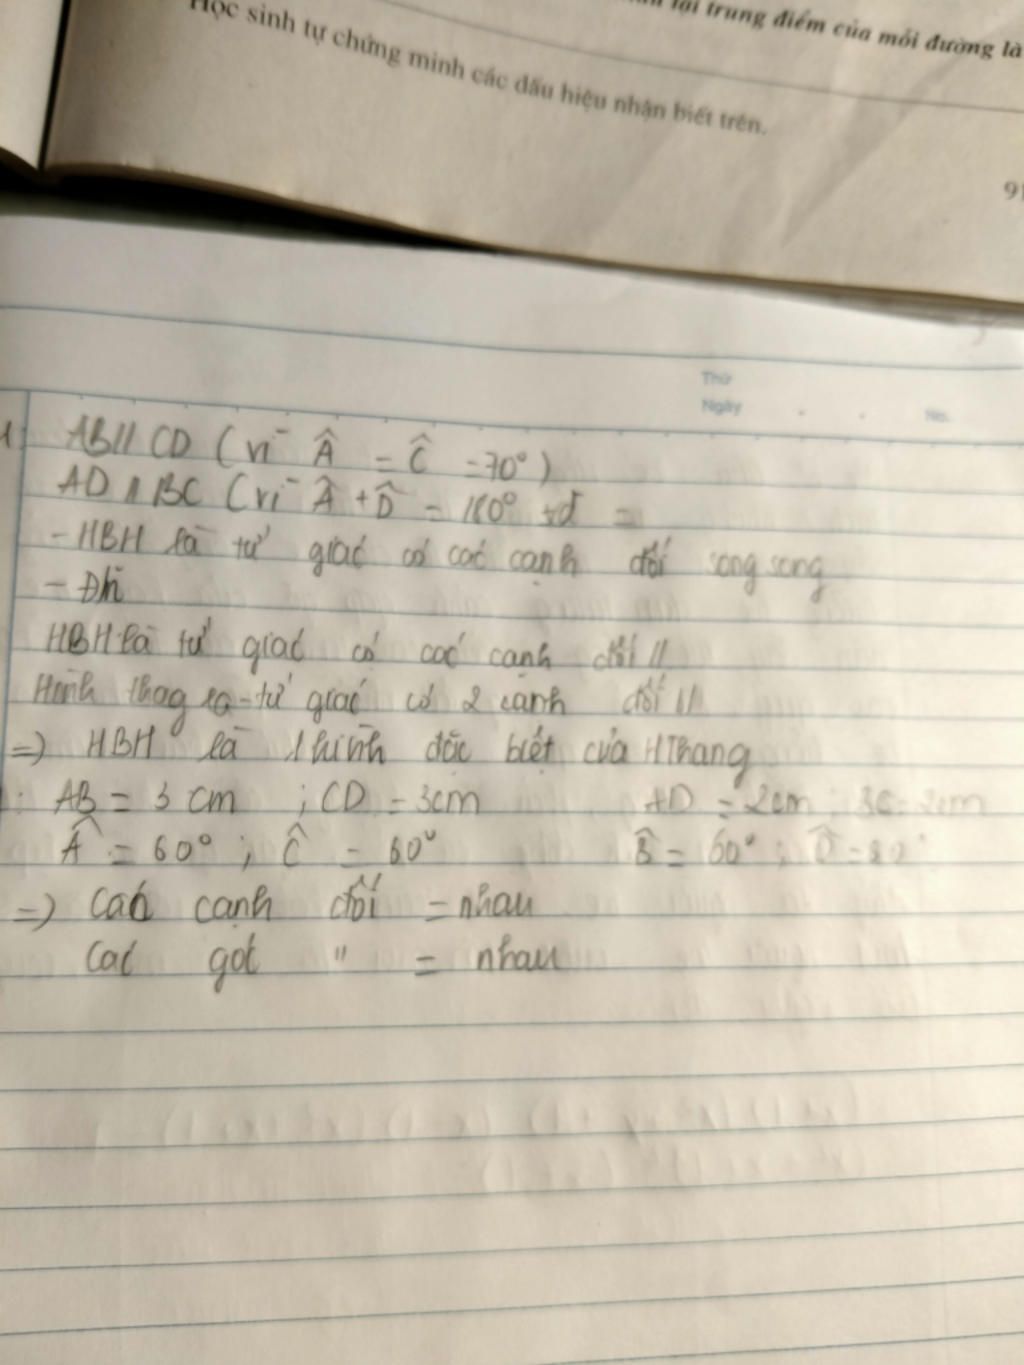 lại trung điểm của mỗi đường là
Học sinh tự chứng minh các dấu hiệu nhận biết trên.
91
Thứ
Ngày No.
AB // CD ( vì Â = Ĉ = 70° )
AD // BC ( vì Â + D̂ = 180° =
- HBH là tứ giác có các cạnh đối song song
- ĐN
HBH là tứ giác có các cạnh đối //
Hình thag là tứ giác có 2 cạnh đối //
=) HBH là 1 hình đặc biệt của HThang
: AB = 3 cm ; CD = 3cm AD = 2cm ; BC = 2cm
Â = 60° ; Ĉ = 60° B̂ = 60° ; D̂ =
=) Các cạnh đối = nhau
Các góc " = nhau